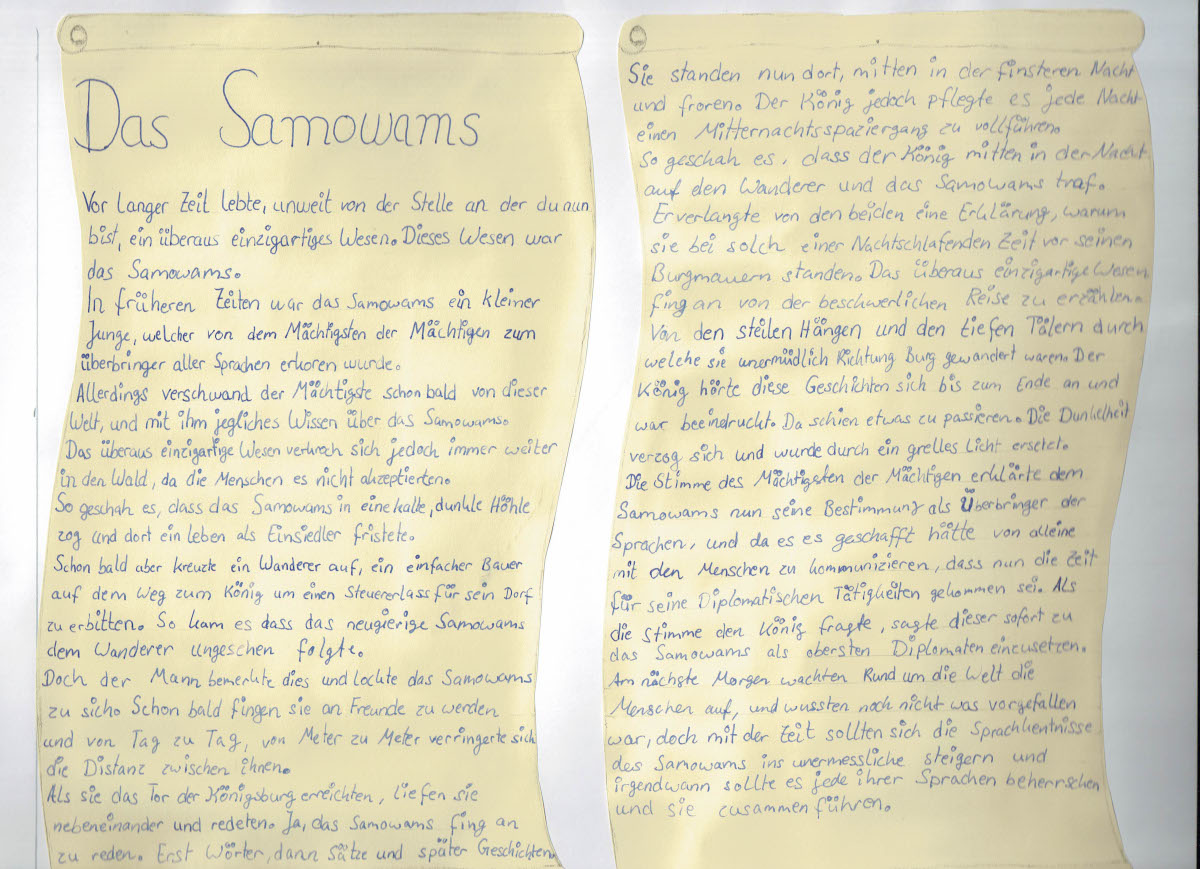 Das Samowams
Vor langer Zeit lebte, unweit von der Stelle an der du nun
bist, ein überaus einzigartiges Wesen. Dieses Wesen war
das Samowams.
In früheren Zeiten war das Samowams ein kleiner
Junge, welcher von dem Mächtigsten der Mächtigen zum
überbringer aller Sprachen erkoren wurde.
Allerdings verschwand der Mächtigste schon bald von dieser
Welt, und mit ihm jegliches Wissen über das Samowams.
Das überaus einzigartige Wesen verkroch sich jedoch immer weiter
in den Wald, da die Menschen es nicht akzeptierten.
So geschah es, dass das Samowams in eine kalte, dunkle Höhle
zog und dort ein leben als Einsiedler fristete.
Schon bald aber kreuzte ein Wanderer auf, ein einfacher Bauer
auf dem Weg zum König um einen Steuererlass für sein Dorf
zu erbitten. So kam es dass das neugierige Samowams
dem Wanderer ungesehen folgte.
Doch der Mann bemerkte dies und lockte das Samowams
zu sich. Schon bald fingen sie an Freunde zu werden
und von Tag zu Tag, von Meter zu Meter verringerte sich
die Distanz zwischen ihnen.
Als sie das Tor der Königsburg erreichten, liefen sie
nebeneinander und redeten. Ja, das Samowams fing an
zu reden. Erst Wörter, dann Sätze und später Geschichten.
Sie standen nun dort, mitten in der finsteren Nacht
und froren. Der König jedoch pflegte es jede Nacht
einen Mitternachtsspaziergang zu vollführen.
So geschah es, dass der König mitten in der Nacht
auf den Wanderer und das Samowams traf.
Er verlangte von den beiden eine Erklärung, warum
sie bei solch einer Nachtschlafenden Zeit vor seinen
Burgmauern standen. Das überaus einzigartige Wesen
fing an von der beschwerlichen Reise zu erzählen.
Von den steilen Hängen und den tiefen Tälern durch
welche sie unermüdlich Richtung Burg gewandert waren. Der
König hörte diese Geschichten sich bis zum Ende an und
war beeindruckt. Da schien etwas zu passieren. Die Dunkelheit
verzog sich und wurde durch ein grelles Licht ersetzt.
Die Stimme des Mächtigsten der Mächtigen erklärte dem
Samowams nun seine Bestimmung als Überbringer der
Sprachen, und da es es geschafft hätte von alleine
mit den Menschen zu kommunizieren, dass nun die Zeit
für seine Diplomatischen Tätigkeiten gekommen sei. Als
die Stimme den König fragte, sagte dieser sofort zu
das Samowams als obersten Diplomaten einzusetzen.
Am nächste Morgen wachten Rund um die Welt die
Menschen auf, und wussten noch nicht was vorgefallen
war, doch mit der Zeit sollten sich die Sprachkentnisse
des Samowams ins unermessliche steigern und
irgendwann sollte es jede ihrer Sprachen beherrschen
und sie zusammen führen.